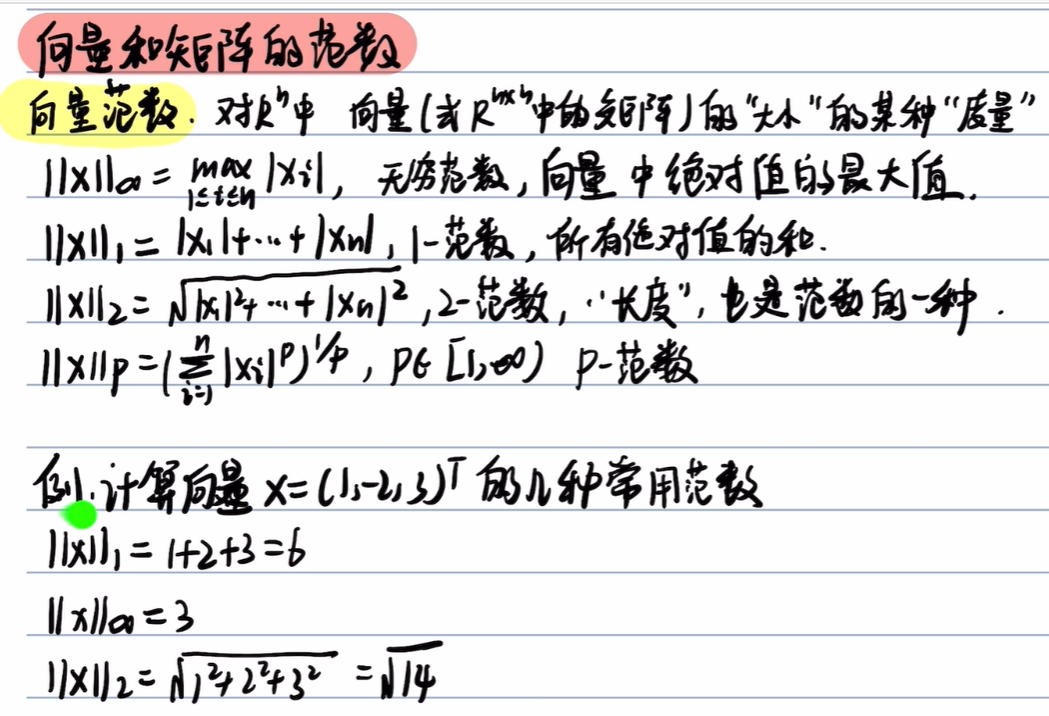 向量和矩阵的范数
向量范数. 对Rⁿ中 向量(或Rⁿˣⁿ中的矩阵)的"大小"的某种"度量"
||X||∞ = max |Xi|, 无穷范数, 向量中绝对值的最大值.
1≤i≤n
||X||₁ = |X₁|+…+|Xn|, 1-范数, 所有绝对值的和.
||X||₂ = √|X₁|²+…+|Xn|², 2-范数, "长度", 也是范数的一种.
||X||p = (∑ⁿᵢ₌₁ |Xi|ᵖ)^1/p, p∈[1,∞) p-范数
例. 计算向量 X=(1,-2,3)ᵀ 的几种常用范数
||X||₁ = 1+2+3=6
||X||∞ = 3
||X||₂ = √1²+2²+3² = √14